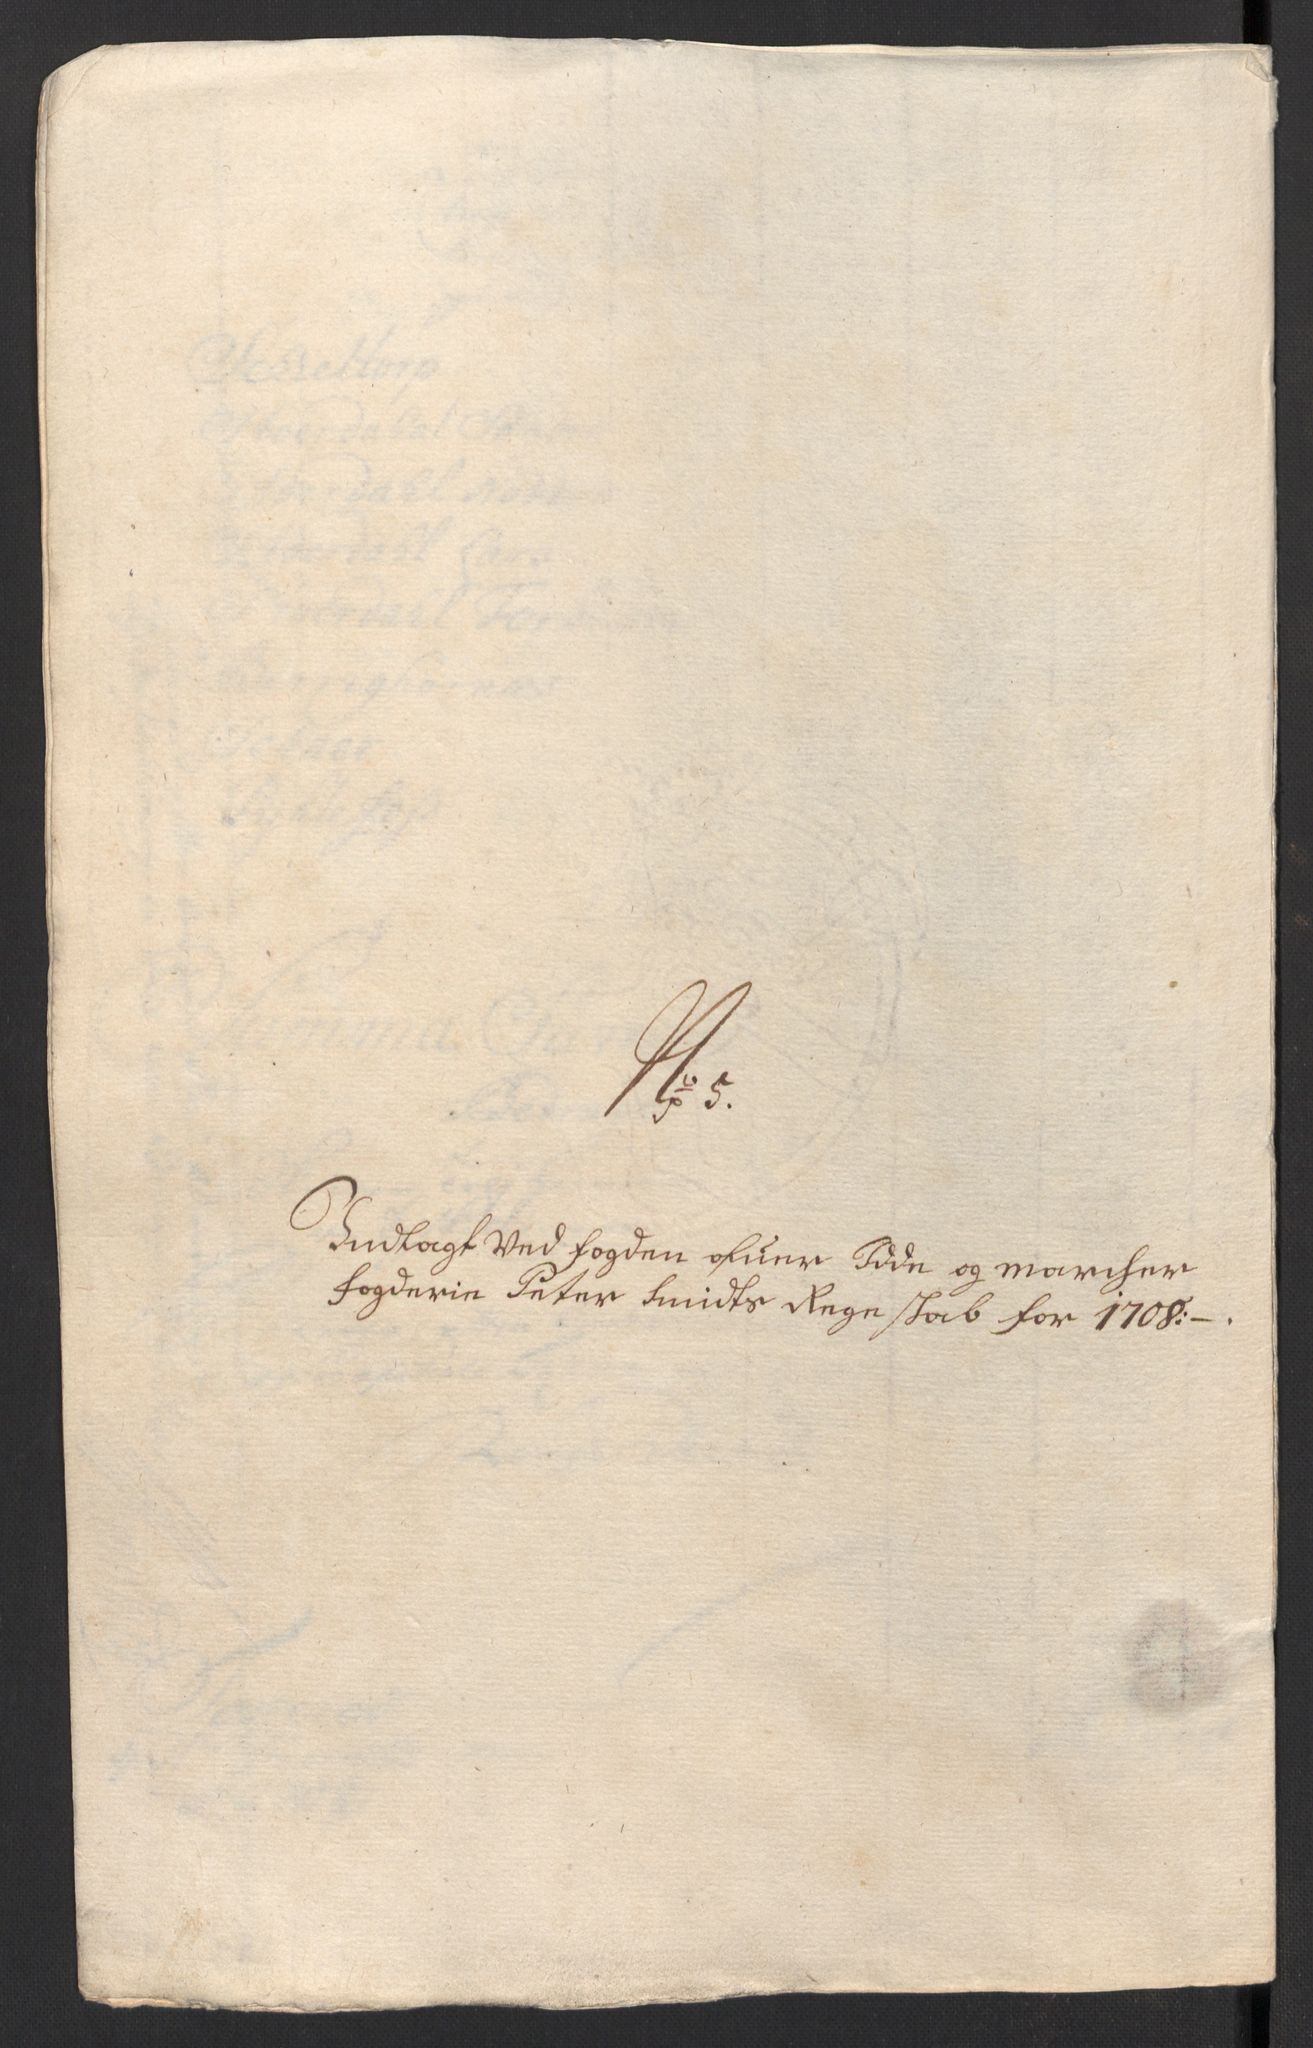 No 5.
Indlagt Ved fogden ofuer Idde og marcher
fogderie Peter Smidts Regenskab for 1708:-.